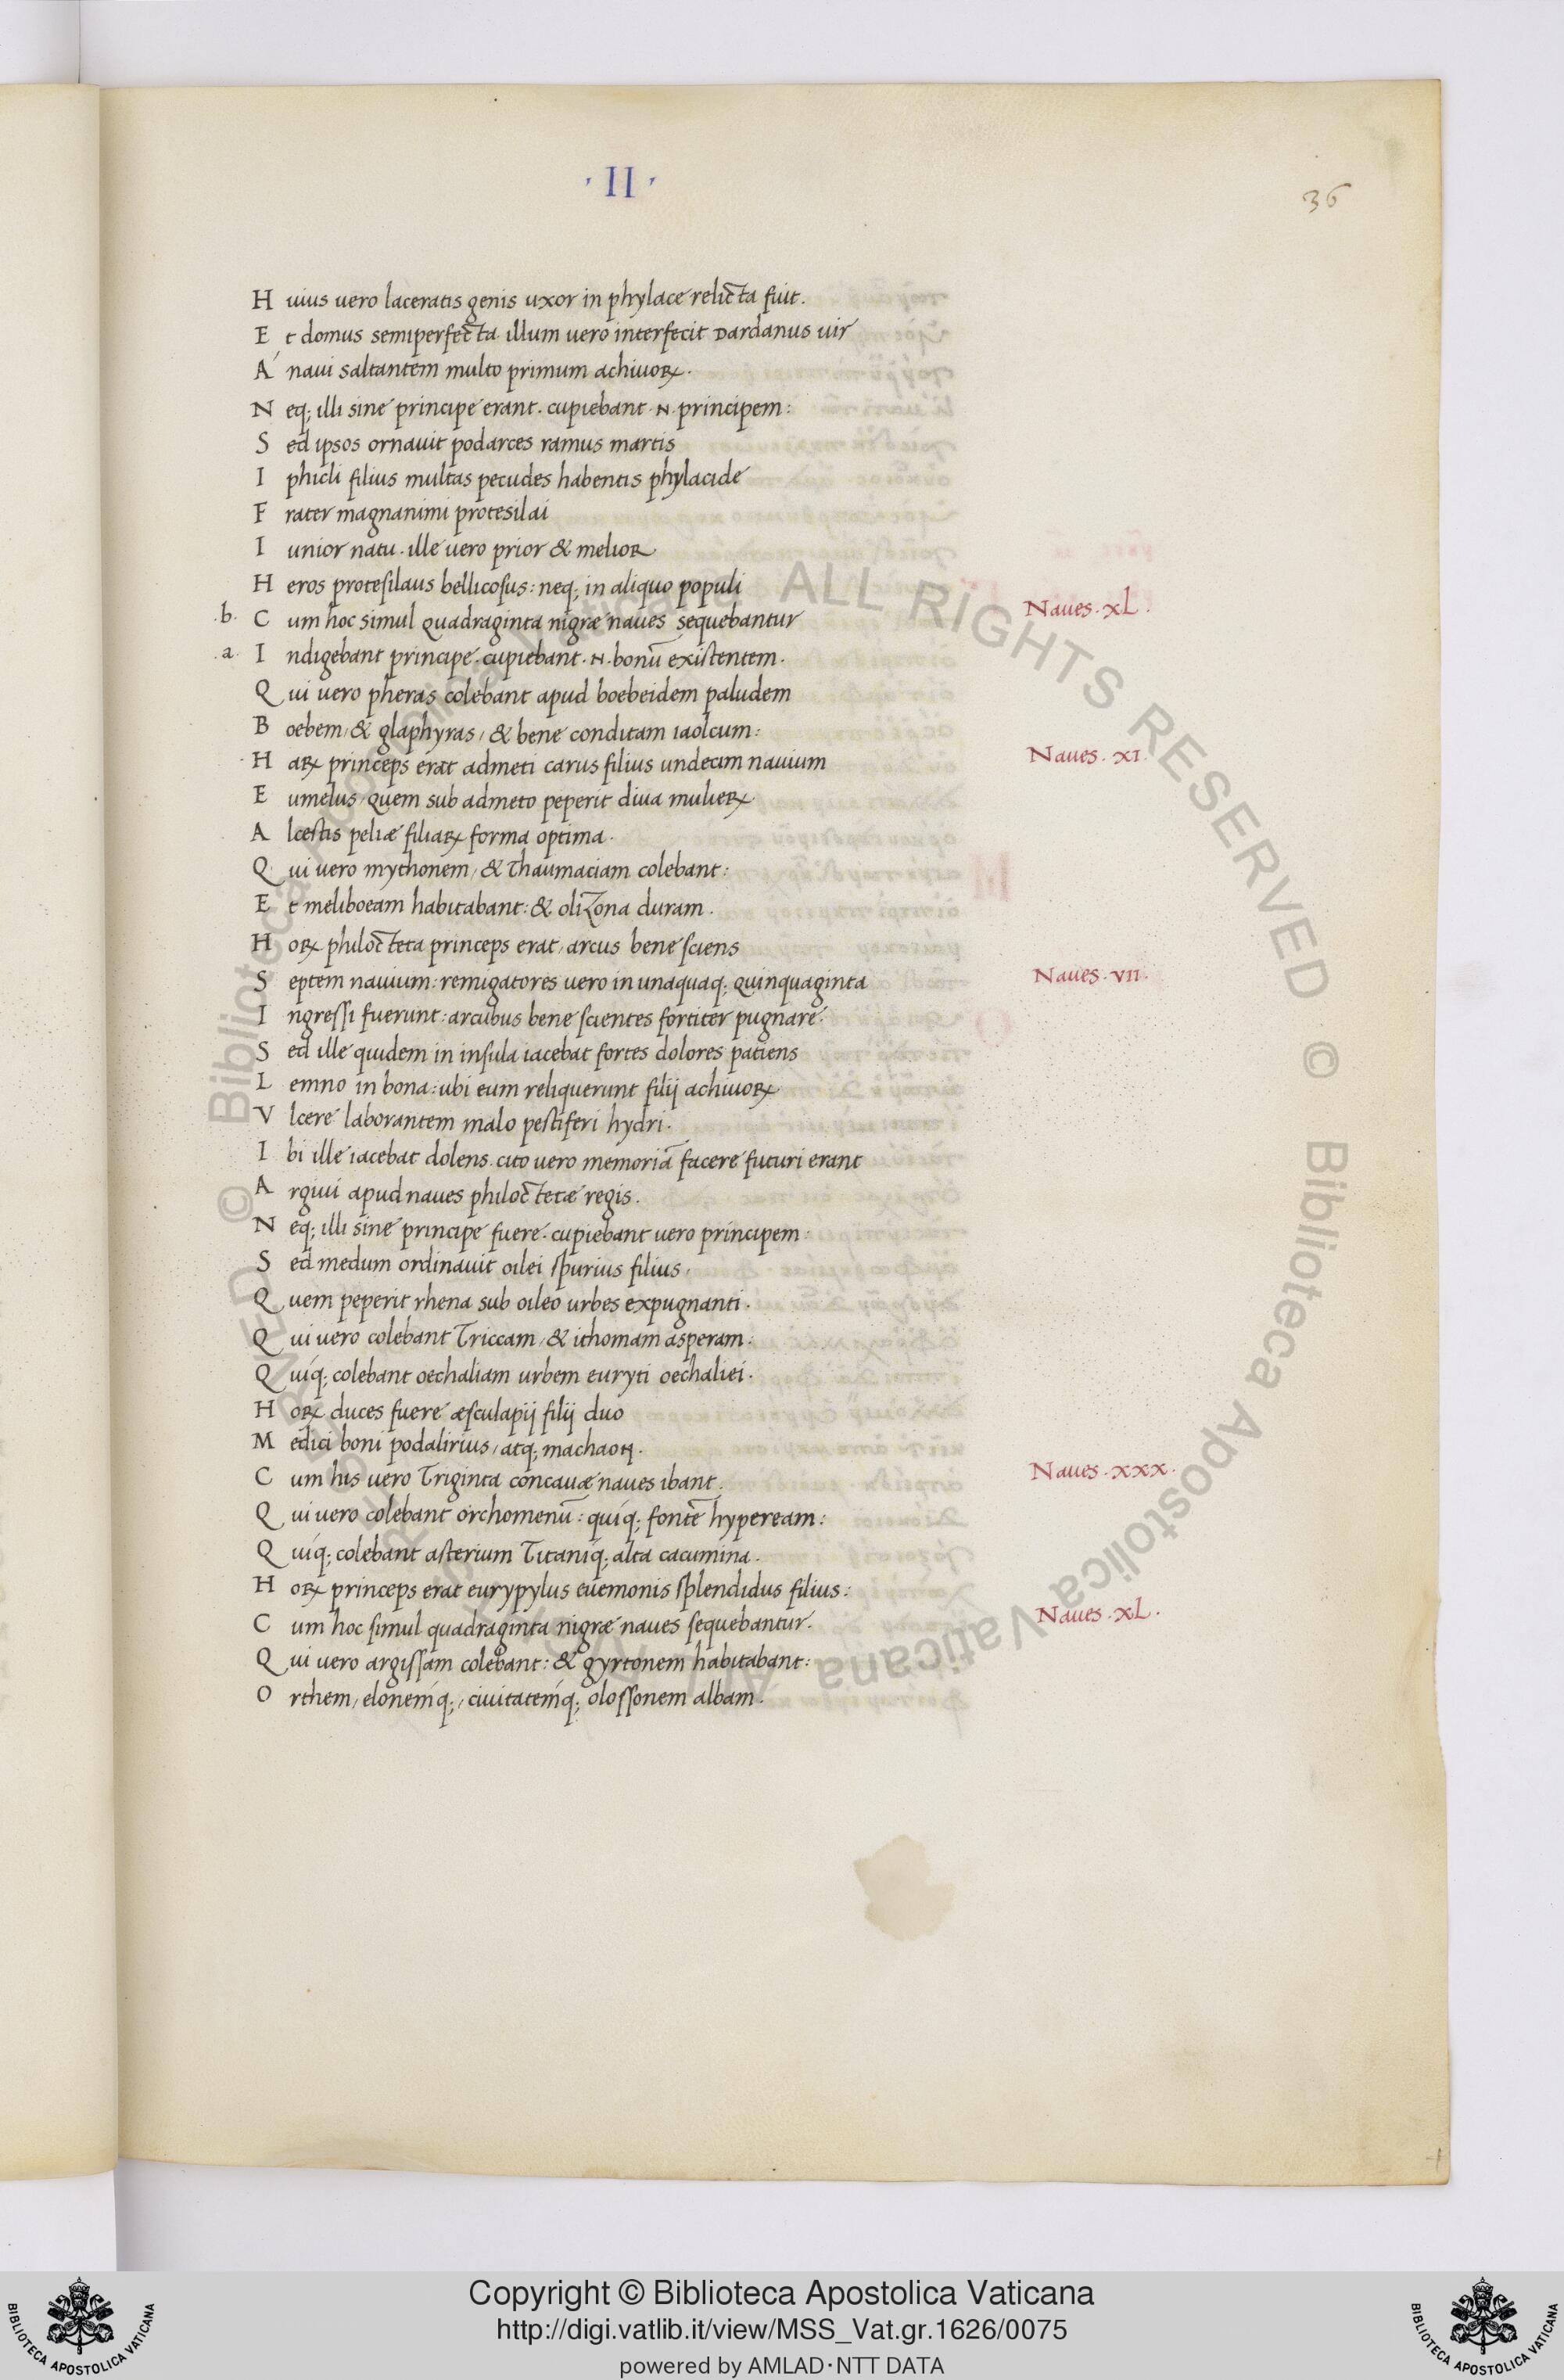 · II ·
36
Huius uero laceratis genis uxor in phylace relicta fuit.
Et domus semiperfecta. illum uero interfecit Dardanus uir
A naui saltantem multo primum achiuoꝝ.
Neq; illi sine principe erant. cupiebant .N. principem:
Sed ipsos ornauit podarces ramus martis
Iphicli filius multas pecudes habentis phylacide
Frater magnanimi protesilai
Iunior natu. ille uero prior & melior
Heros protesilaus bellicosus: neq; in aliquo populi
.b. Cum hoc simul quadraginta nigræ naues sequebantur
Naues. xL.
.a. Indigebant principe. cupiebant .N. bonū existentem.
Qui uero pheras colebant apud boebeidem paludem
Boebem, & glaphyras, & bene conditam iaolcum:
Haꝝ princeps erat admeti carus filius undecim nauium
Naues. xI.
Eumelus, quem sub admeto peperit diua mulieꝝ
Alcestis peliæ filiaꝝ forma optima.
Qui uero mythonem, & Thaumaciam colebant:
Et meliboeam habitabant: & oliZona duram.
Hoꝝ philocteta princeps erat, arcus bene sciens
Septem nauium: remigatores uero in unaquaq; quinquaginta
Naues. vII.
Ingressi fuerunt: arcubus bene scientes fortiter pugnare.
Sed ille quidem in insula iacebat fortes dolores patiens
Lemno in bona: ubi eum reliquerunt filij achiuoꝝ
Vlcere laborantem malo pestiferi hydri.
Ibi ille iacebat dolens. cito uero memoriā facere futuri erant
Argiui apud naues philoctetæ regis.
Neq; illi sine principe fuere. cupiebant uero principem:
Sed medum ordinauit oilei spurius filius.
Quem peperit rhena sub oileo urbes expugnanti.
Qui uero colebant Triccam, & ithomam asperam:
Quiq; colebant oechaliam urbem euryti oechaliei.
Hoꝝ duces fuere æsculapij filij duo
Medici boni podalirius, atq; machaon.
Cum his uero Triginta concauæ naues ibant.
Naues. xxx.
Qui uero colebant orchomenū: quiq; fontē hypeream:
Quiq; colebant asterium Titaniq; alta cacumina.
Hoꝝ princeps erat eurypylus euemonis splendidus filius:
Cum hoc simul quadraginta nigræ naues sequebantur.
Naues. xL.
Qui uero argissam colebant: & gyrtonem habitabant:
Orthem, elonemq;, ciuitatemq; olossonem albam.
© Biblioteca Apostolica Vaticana ALL RIGHTS RESERVED © Biblioteca Apostolica Vaticana
Copyright © Biblioteca Apostolica Vaticana
http://digi.vatlib.it/view/MSS_Vat.gr.1626/0075
powered by AMLAD·NTT DATA
BIBLIOTECA APOSTOLICA VATICANA
BIBLIOTECA APOSTOLICA VATICANA